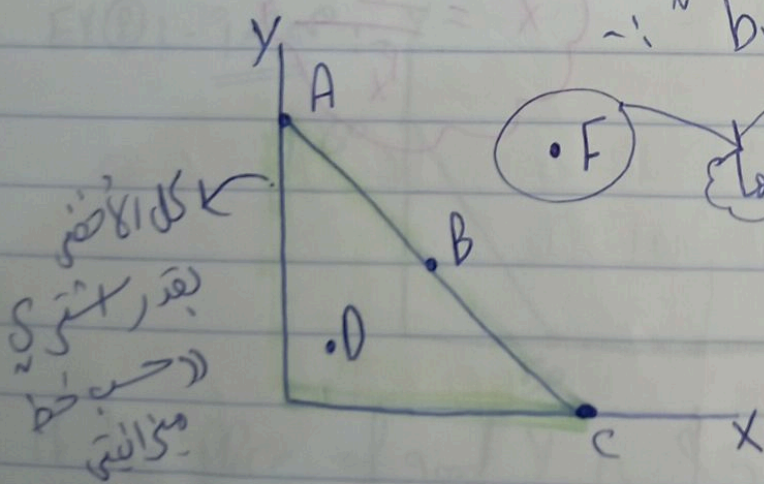 Y
A
b
. F
B
كل الأخضر
بقدر اشتري
. D
حسب خط
ميزانيتي
C
X